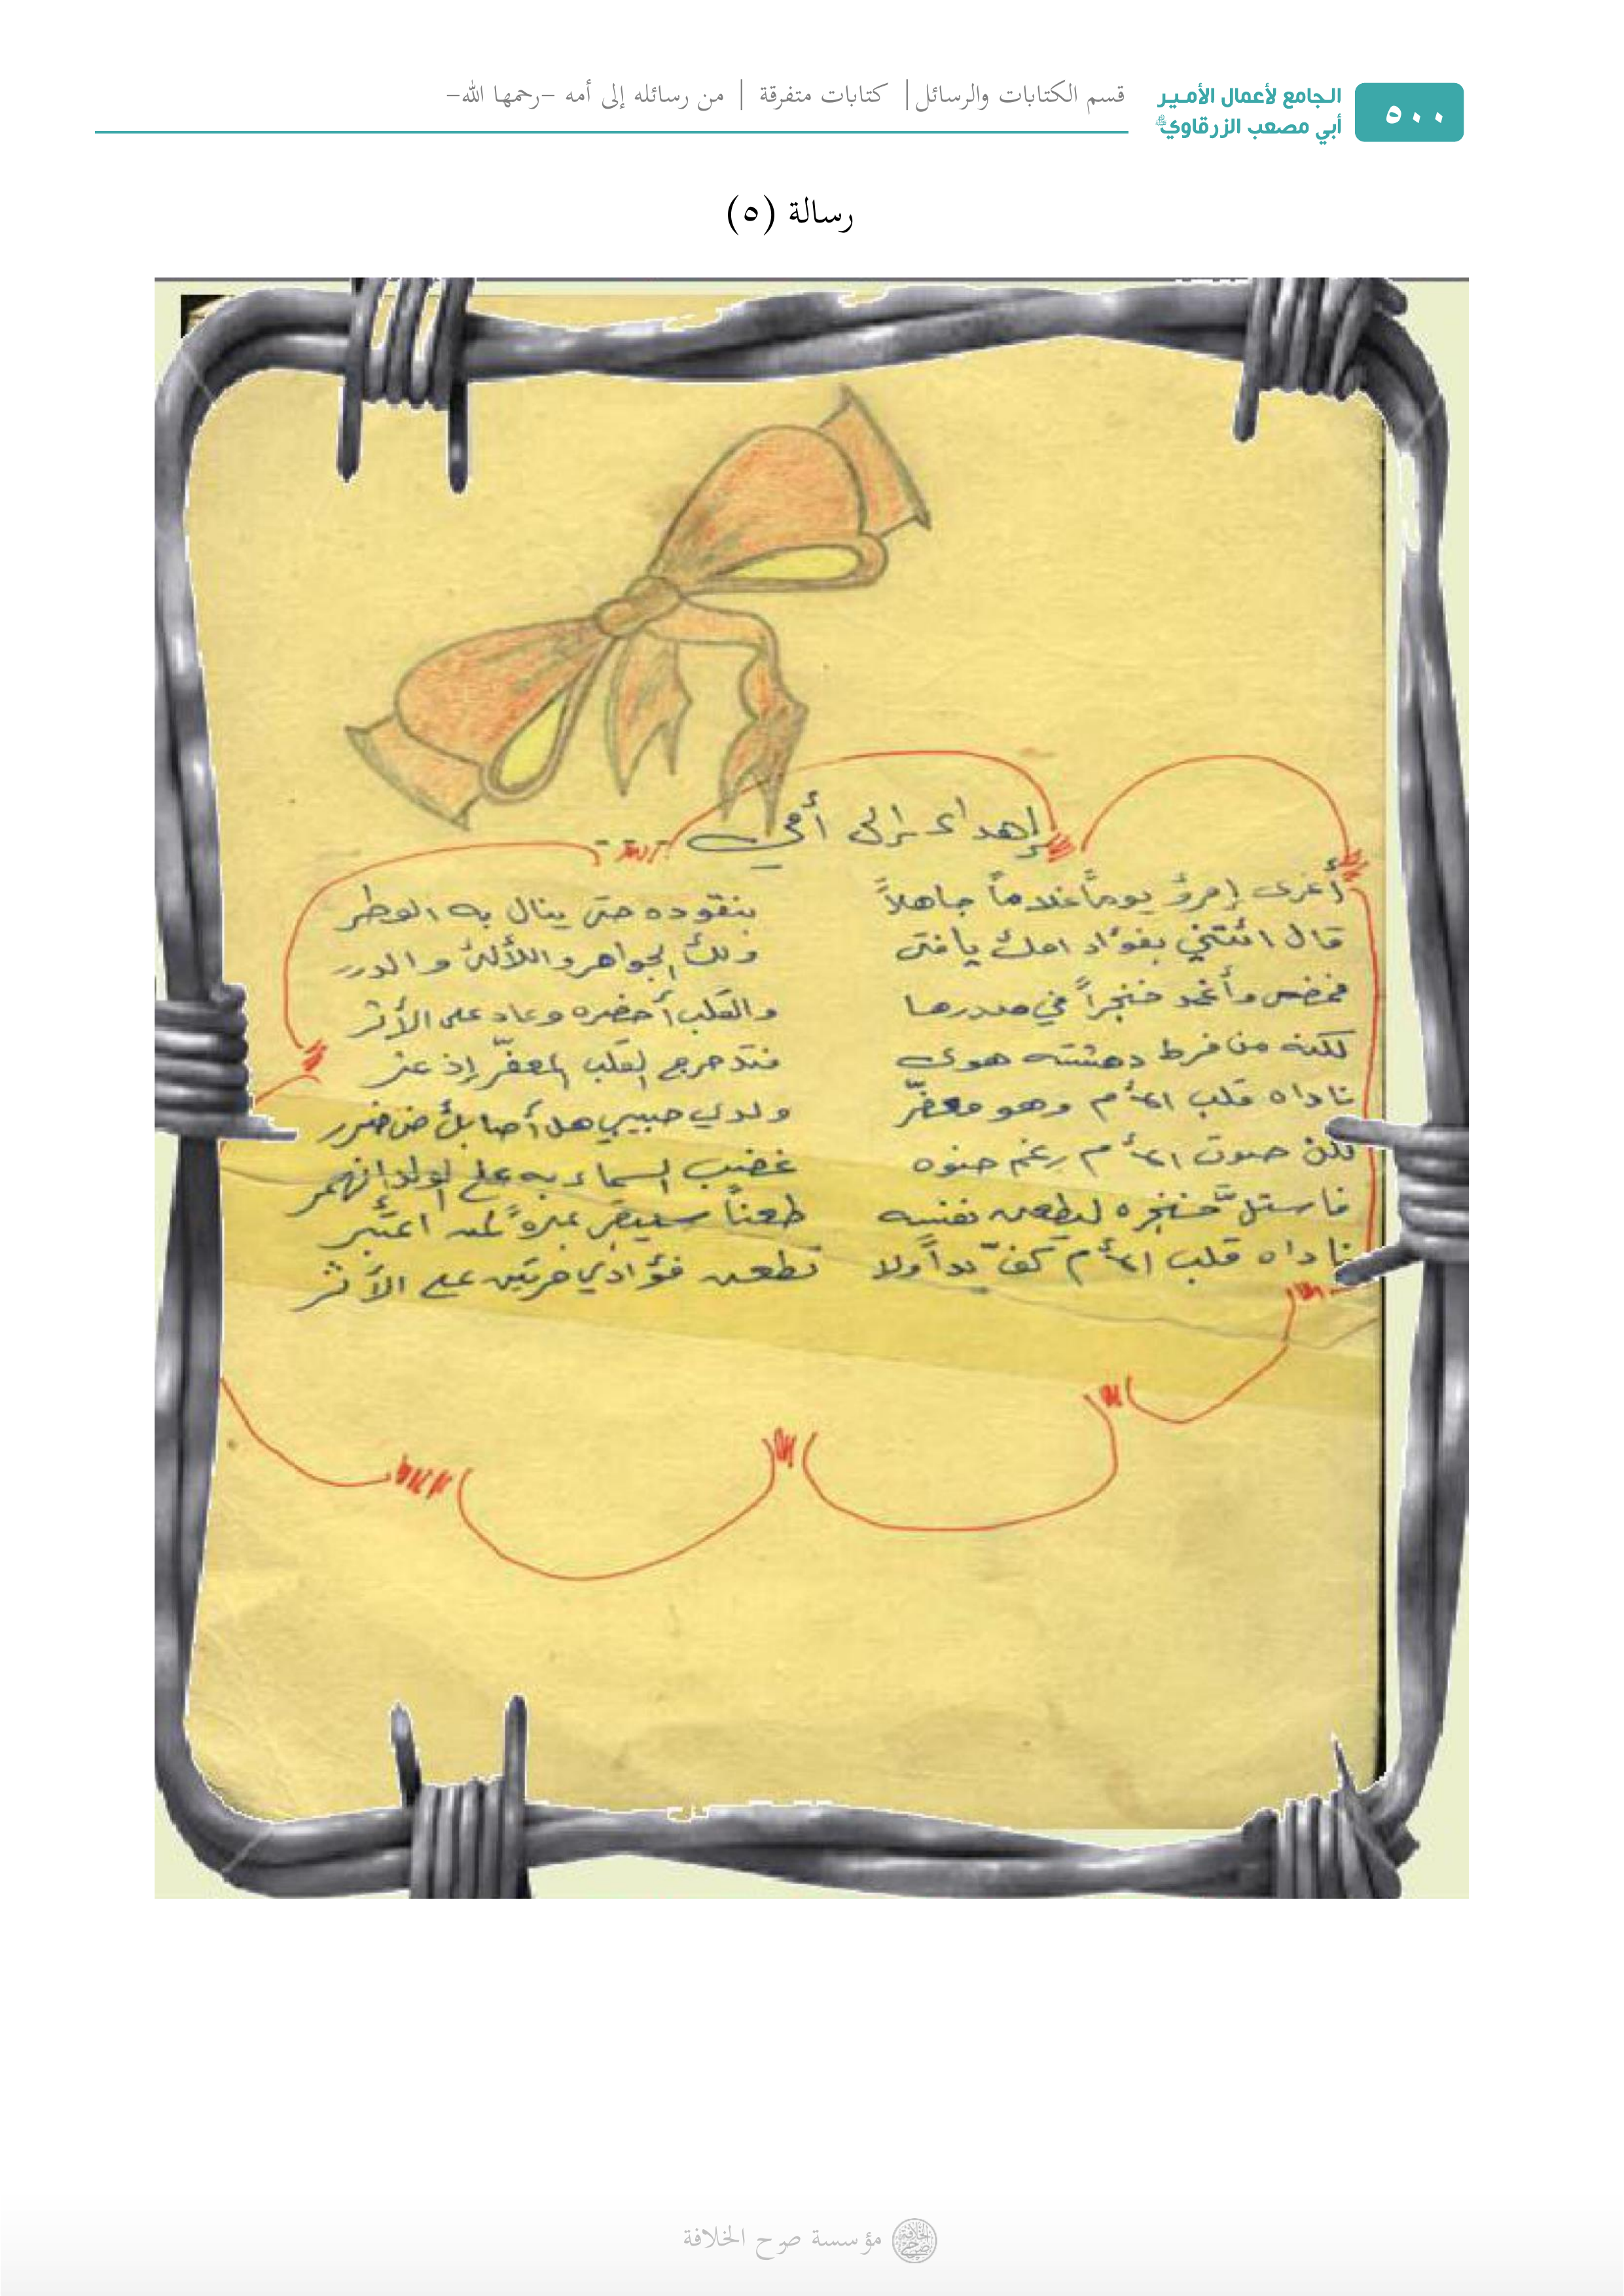 ٥٠٠
الجامع لأعمال الأمير
أبي مصعب الزرقاوي
قسم الكتابات والرسائل | كتابات متفرقة | من رسائله إلى أمه -رحمها الله-
رسالة (٥)
إهداء إلى أمي
أغرى إمرؤ يوماً غلاماً جاهلاً بنقوده حتى ينال به الوطر
قال ائتني بفؤاد امك يا فتى ولك الجواهر واللآلئ والدرر
فمضى وأغمد خنجراً في صدرها والقلب أحضره وعاد على الأثر
لكنه من فرط دهشته هوى فتدحرج القلب المعفّر إذ عثر
ناداه قلب الأم وهو معفّر ولدي حبيبي هل أصابك من ضرر
فكأن صوت الأم رغم حنوه غضب السماء به على الولد انهمر
فاستلّ خنجره ليطعن نفسه طعناً سيبقى عبرةً لمن اعتبر
ناداه قلب الأم كفّ يداً ولا تطعن فؤادي مرتين على الأثر
مؤسسة صرح الخلافة